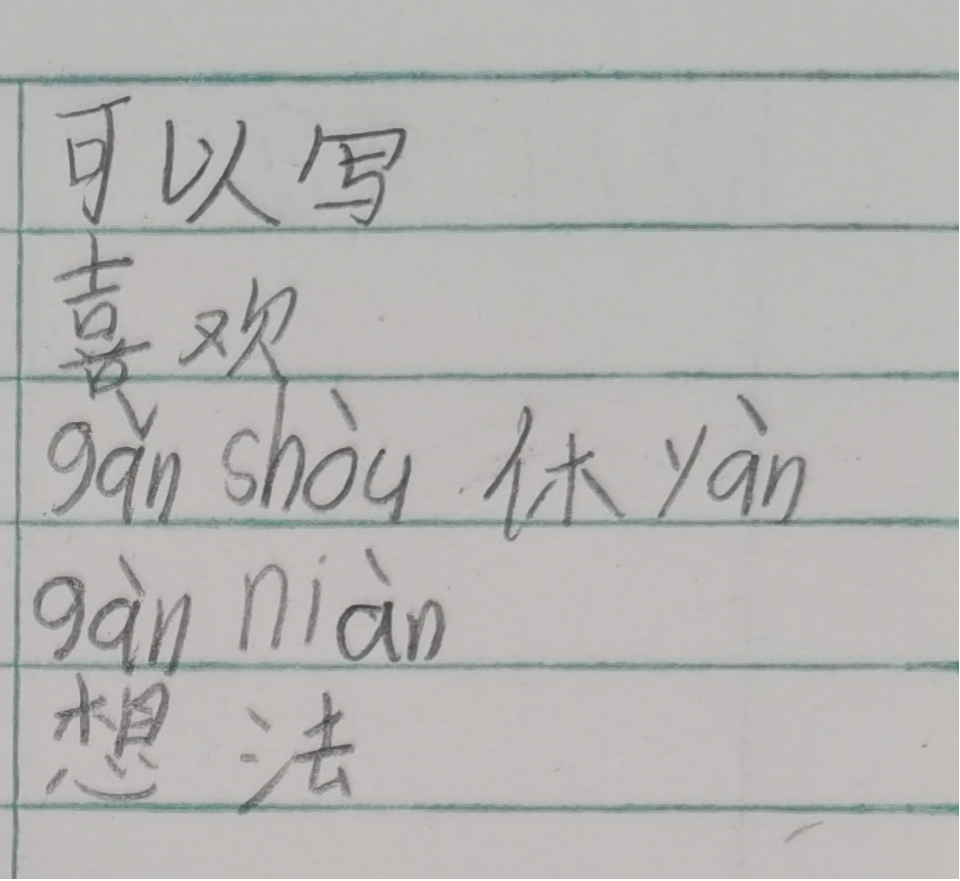 可以写
喜欢
gǎn shòu 休 yàn
gàn niàn
想法